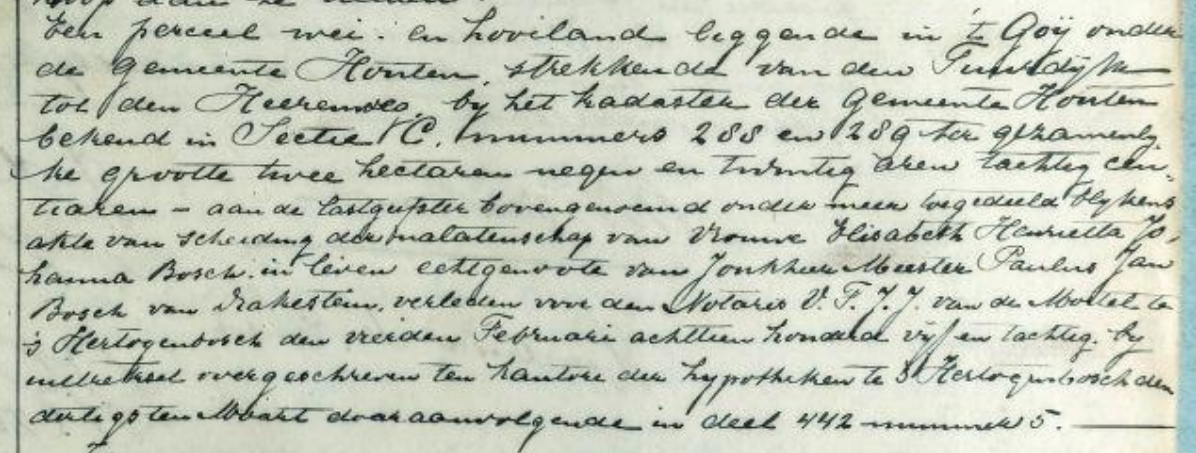 Een perceel wei- en hooiland leggende in 't Goÿ onder
de gemeente Houten, strekkende van den Tuurdÿk
tot den Heerenweg, bÿ het kadaster der gemeente Houten
bekend in Sectie C. nummers 288 en 289 ter gezamenlÿ-
ke grootte twee hectaren negen en twintig aren tachtig cen-
tiaren – aan de lastgeefster bovengenoemd onder meer toegedeeld blÿkens
akte van scheiding der nalatenschap van Vrouwe Elisabeth Henrietta Jo-
hanna Bosch in leven echtgenoote van Jonkheer Meester Paulus Jan
Bosch van Drakestein, verleden voor den Notaris V. F. J. J. van de Mortel te
's Hertogenbosch den vierden Februari achttien honderd vÿf en tachtig, bÿ
uittreksel overgeschreven ten kantore der hypotheken te 's Hertogenbosch den
dertigsten Maart daaraanvolgende in deel 442 nummer 5.